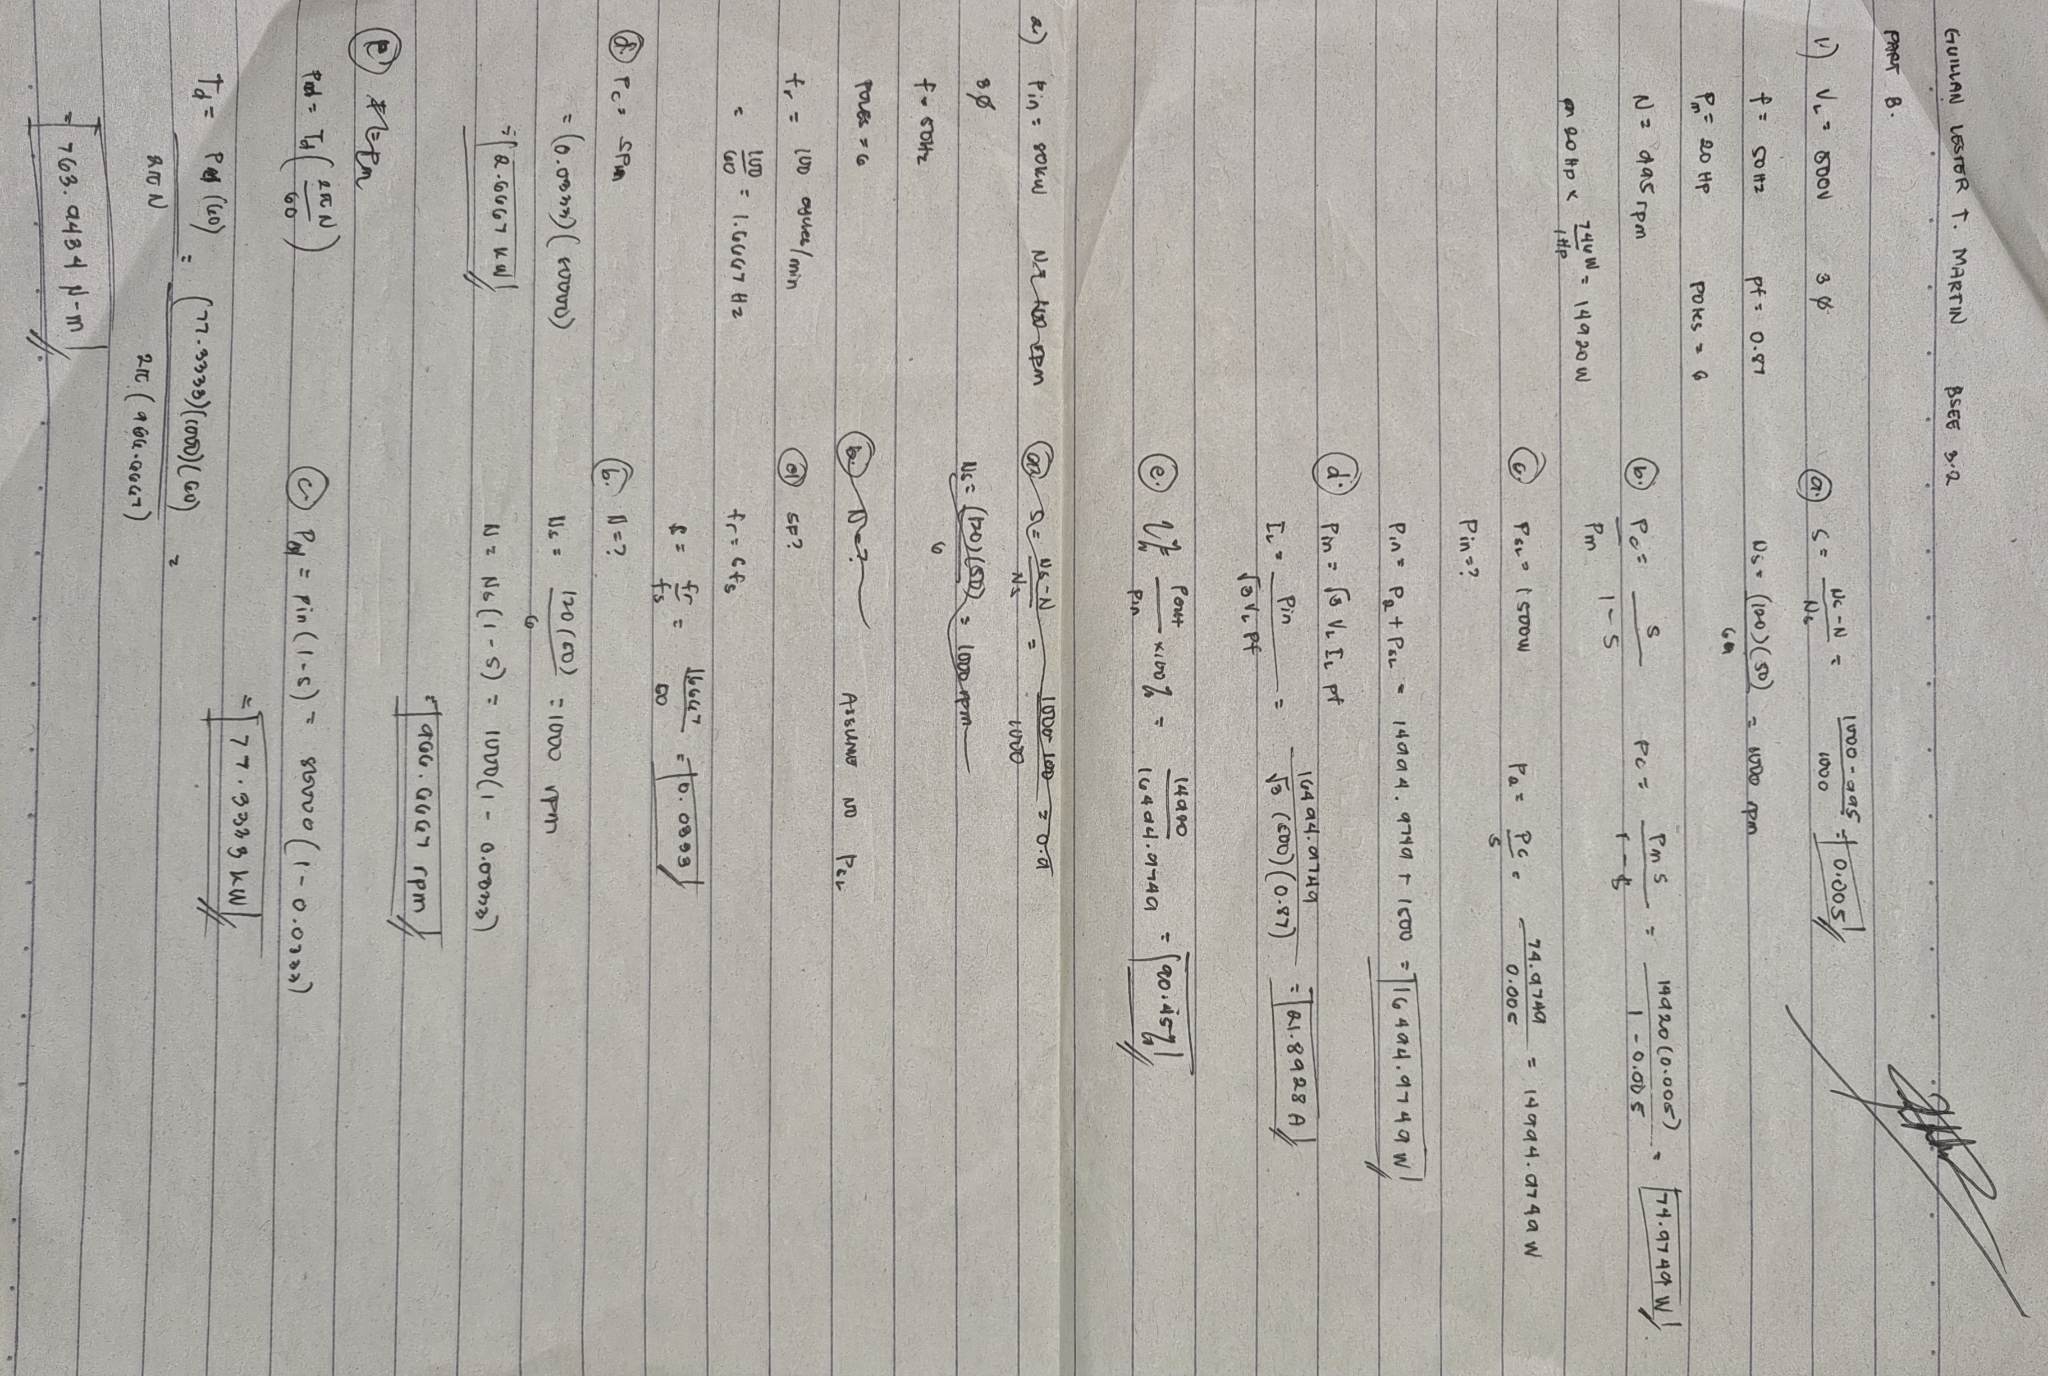 GUILLAN LESTER T. MARTIN BSEE 3-2
PART B.
1) VL = 500V 3φ
f = 50Hz pf = 0.87
Pm = 20 HP POLES = 6
N = 995 rpm
20 HP x 746W / 1HP = 14920 W
a. S = Ns - N / Ns = 1000 - 995 / 1000 = 0.005
Ns = (120)(50) / 6 = 1000 rpm
b. Pc / Pm = S / 1 - S Pc = Pm S / 1 - S = 14920(0.005) / 1 - 0.005 = 74.9749 W
c. PSL = 1500W Pa = Pc / S = 74.9749 / 0.005 = 14994.9749 W
Pin = ?
Pin = Pa + PSL = 14994.9749 + 1500 = 16494.9749 W
d. Pin = √3 VL IL pf
IL = Pin / √3 VL pf = 16494.9749 / √3 (500)(0.87) = 21.8928 A
e. η% = Pout / Pin x 100% = 14920 / 16494.9749 = 90.45%
2) Pin = 80kW N = 100 rpm
3φ
f = 50Hz
POLES = 6
fr = 100 cycles/min
= 100 / 60 = 1.6667 Hz
a. S = Ns - N / Ns = 1000 - 100 / 1000 = 0.9
Ns = (120)(50) / 6 = 1000 rpm
b. N = ? ASSUME NO PSL
a) S = ?
fr = S fs
S = fr / fs = 1.6667 / 50 = 0.0333
b. N = ?
Ns = 120(50) / 6 = 1000 rpm
N = Ns(1 - S) = 1000(1 - 0.0333)
= 966.6667 rpm
c. Pd = Pin(1 - S) = 80000(1 - 0.0333)
= 77.3333 kW
d Pc = SPin
= (0.0333)(80000)
= 2.6667 kW
e
Pd = Td (2πN / 60)
Td = Pd (60) / 2πN = (77.3333)(1000)(60) / 2π (966.6667) =
= 763.9434 N-m